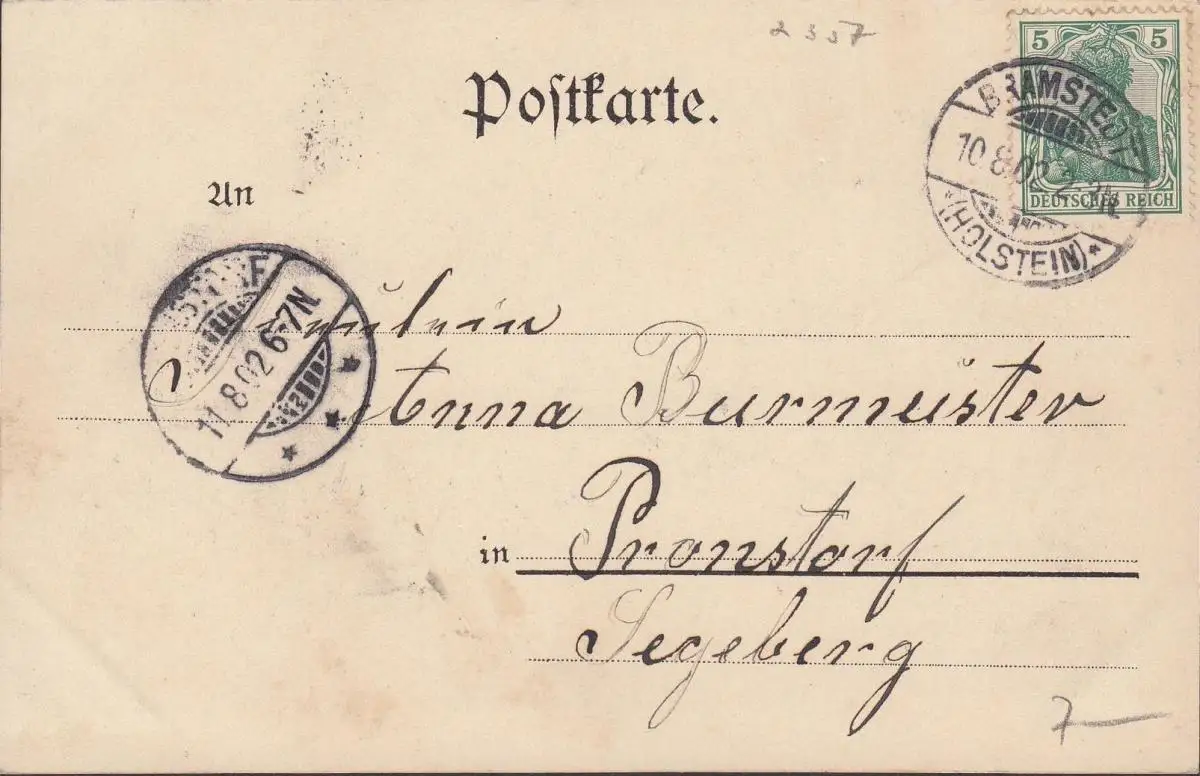 2337
Postkarte.
5 5
DEUTSCHES REICH
BRAMSTEDT
10.8.02 2-3N
*(HOLSTEIN)*
An
11.8.02 6-7N
Fräulein
Anna Burmeister
in Pronstorf
Segeberg
7